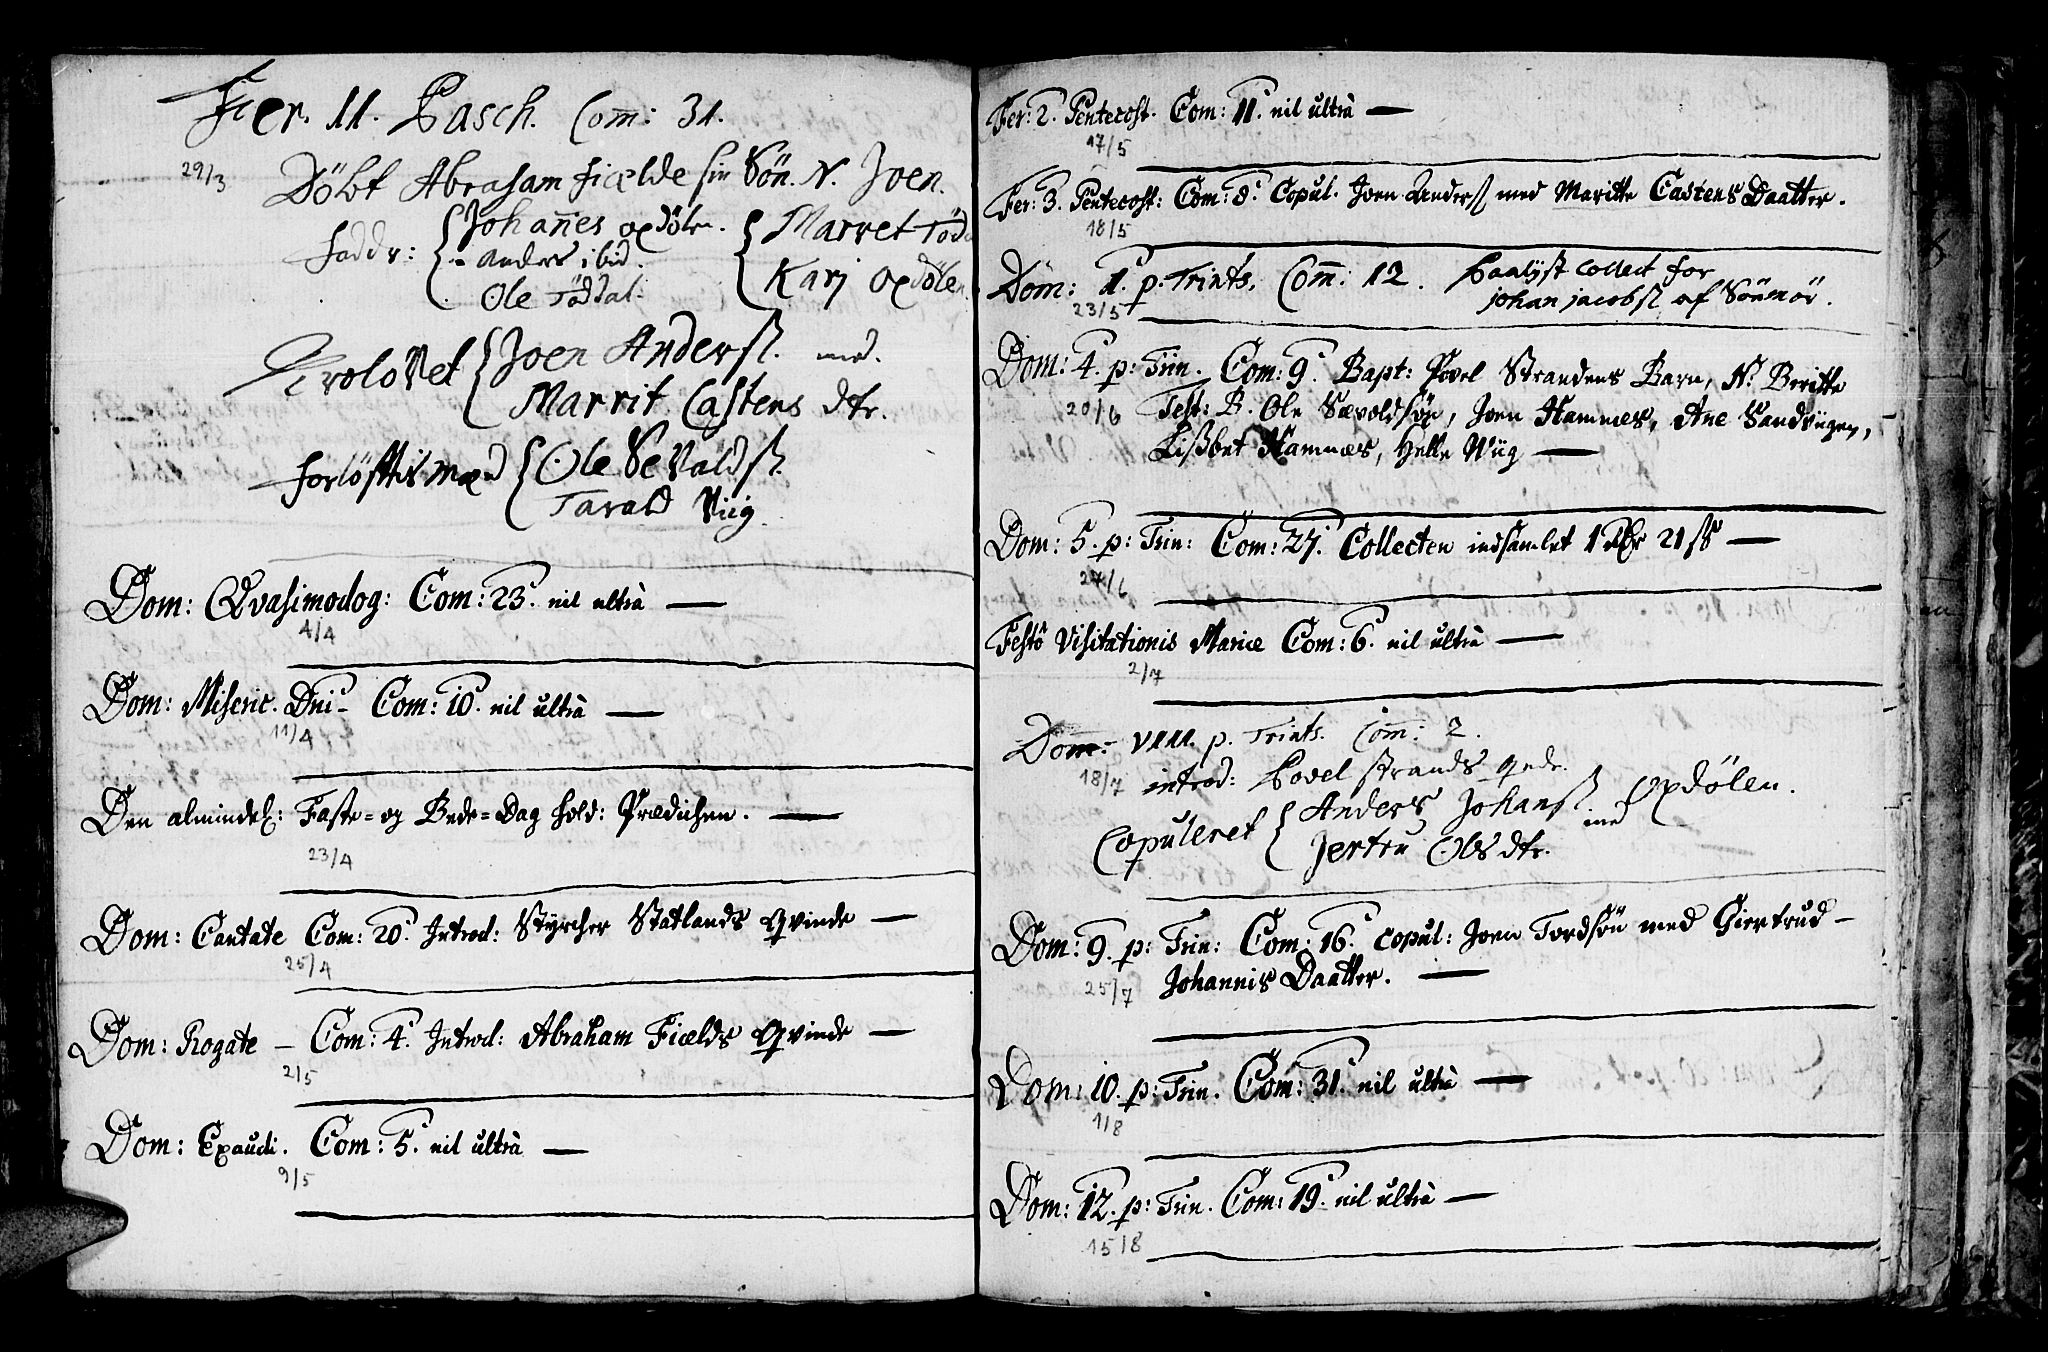 Fer. 11. Pasch. Com̄: 31.
29/3
Döbt Abraham fiælde sin Sön. N. Joen.
faddr: Johan̄es opdöln. Marret Tödd
Anders ibid. Karj opdölen
Ole Töddal.
Trolovet Joen Anderss. med.
Marrit Castens dtr.
forlöftis mænd Ole Sevaldss.
Tarald Viig.
Dom: Qvasimodog: Com: 23. nil ultrà —
4/4
Dom: Miseric. Dni – Com: 10. nil ultrà —
11/4
Den almindel: Faste= og Bede=Dag hold: Prædichen. —
23/4
Dom: Cantate Com: 20. Introd: Styrcher Statlands Qvinde —
25/4
Dom: Rogate – Com: 4. Introd: Abraham Fiælds Qvinde —
2/5
Dom: Exaudi. Com: 5. nil ultrà —
9/5
Fer: 2. Pentecost. Com: 11. nil ultrà —
17/5
Fer: 3. Pentecost: Com: 8. Copul. Joen Anderss med Maritte Castens Daatter.
18/5
Dom: 1. p. Trints. Com̄: 12. Paalyst collect for
23/5
johan jacobss af Sönmör.
Dom: 4. p: Trin. Com: 9. Bapt: Povel Strandens Barn, N: Beritte
20/6 Test: B. Ole Sævoldsøn, Joen Hammes, Ane Sandvigen,
Lissbet Hammes, Helle Wiig —
Dom: 5. p: Trin: Com: 27. Collecten indsamlet 1 Rdr 21 ss —
27/6
Festô Visitationis Mariæ Com: 6. nil ultrà —
2/7
Dom: VIII. p. Trints. Com̄: 2.
18/7 introd: Povel strands qvde.
Copuleret Anders Johanss med Opdölen.
Jertru Ols dtr.
Dom: 9. p: Trin: Com: 16. copul: Joen Tordsøn med Giertrud –
25/7 Johannis Daatter. —
Dom: 10. p: Trin. Com: 31. nil ultrà —
1/8
Dom: 12. p: Trin. Com: 19. nil ultrà —
15/8